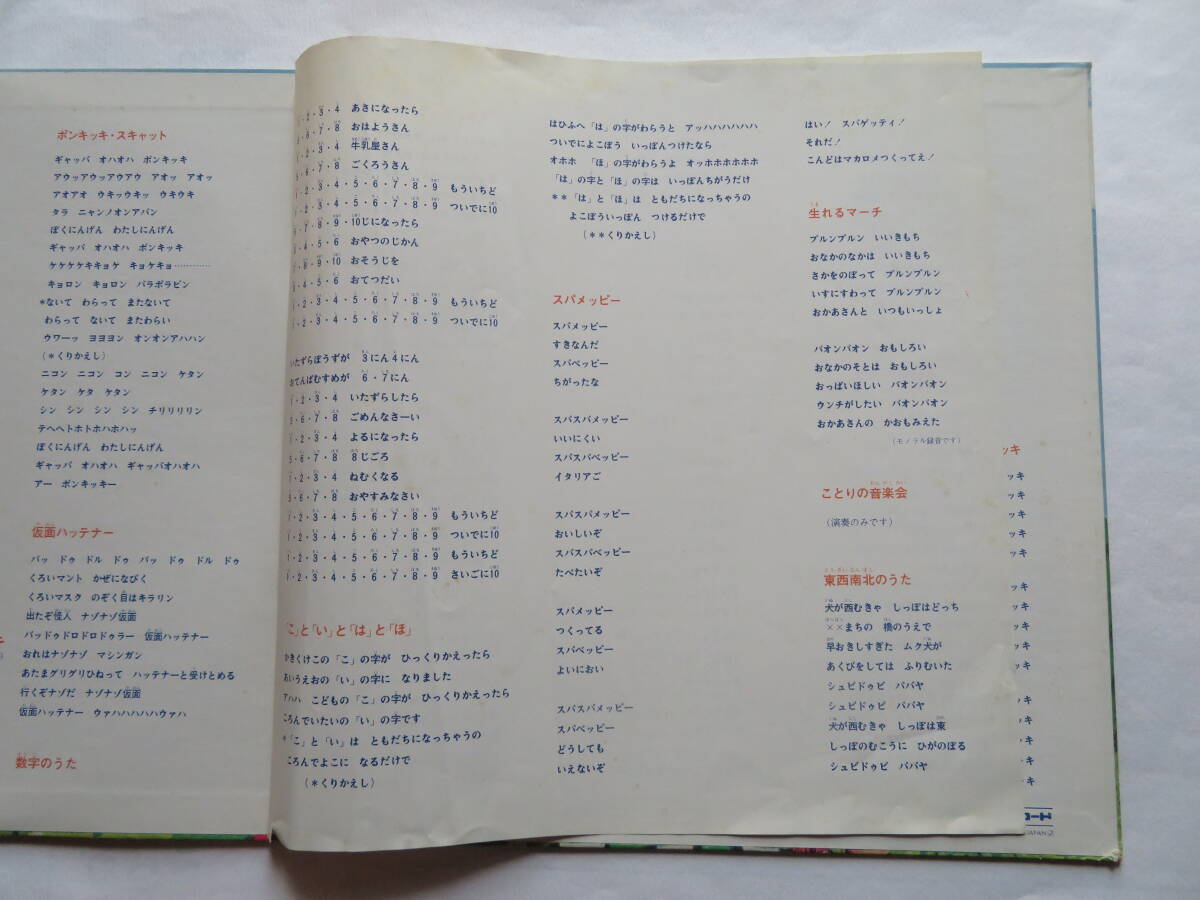 ポンキッキ・スキャット
ギャッパ オハオハ ポンキッキ
アウッアウッアウアウ アオッ アオッ
アオアオ ウキッウキッ ウキウキ
タラ ニャンノオンアパン
ぼくにんげん わたしにんげん
ギャッパ オハオハ ポンキッキ
ケケケケキキョケ キョケキョ…………
キョロン キョロン パラポラピン
*ないて わらって またないて
わらって ないて またわらい
ウワーッ ヨヨヨン オンオンアハハン
(*くりかえし)
ニコン ニコン コン ニコン ケタン
ケタン ケタ ケタン
シン シン シン シン チリリリリン
テヘヘトホトホハホハッ
ぼくにんげん わたしにんげん
ギャッパ オハオハ ギャッパオハオハ
アー ポンキッキー
仮面ハッテナー
バッ ドゥ ドル ドゥ バッ ドゥ ドル ドゥ
くろいマント かぜになびく
くろいマスク のぞく目はキラリン
出たぞ怪人 ナゾナゾ仮面
バッドゥドロドロドゥラー 仮面ハッテナー
おれはナゾナゾ マシンガン
あたまグリグリひねって ハッテナーと受けとめる
行くぞナゾだ ナゾナゾ仮面
仮面ハッテナー ウァハハハハハウァハ
数字のうた
1・2・3・4 あさになったら
5・6・7・8 おはようさん
1・2・3・4 牛乳屋さん
5・6・7・8 ごくろうさん
1・2・3・4・5・6・7・8・9 もういちど
1・2・3・4・5・6・7・8・9 ついでに10
7・8・9・10じになったら
3・4・5・6 おやつのじかん
7・8・9・10 おそうじを
3・4・5・6 おてつだい
1・2・3・4・5・6・7・8・9 もういちど
1・2・3・4・5・6・7・8・9 ついでに10
いたずらぼうずが 3にん4にん
おてんばむすめが 6・7にん
1・2・3・4 いたずらしたら
5・6・7・8 ごめんなさーい
1・2・3・4 よるになったら
5・6・7・8 8じごろ
1・2・3・4 ねむくなる
5・6・7・8 おやすみなさい
1・2・3・4・5・6・7・8・9 もういちど
1・2・3・4・5・6・7・8・9 ついでに10
1・2・3・4・5・6・7・8・9 もういちど
1・2・3・4・5・6・7・8・9 さいごに10
「こ」と「い」と「は」と「ほ」
かきくけこの「こ」の字が ひっくりかえったら
あいうえおの「い」の字に なりました
アハハ こどもの「こ」の字が ひっくりかえったら
ころんでいたいの「い」の字です
*「こ」と「い」は ともだちになっちゃうの
ころんでよこに なるだけで
(*くりかえし)
はひふへ「は」の字がわらうと アッハハハハハハ
ついでによこぼう いっぽんつけたなら
オホホ 「ほ」の字がわらうよ オッホホホホホホ
「は」の字と「ほ」の字は いっぽんちがうだけ
**「は」と「ほ」は ともだちになっちゃうの
よこぼういっぽん つけるだけで
(**くりかえし)
スパメッピー
スパメッピー
すきなんだ
スパペッピー
ちがったな
スパスパメッピー
いいにくい
スパスパペッピー
イタリアご
スパスパメッピー
おいしいぞ
スパスパペッピー
たべたいぞ
スパメッピー
つくってる
スパペッピー
よいにおい
スパスパメッピー
スパペッピー
どうしても
いえないぞ
はい! スパゲッティ!
それだ!
こんどはマカロメつくってえ!
生れるマーチ
プルンプルン いいきもち
おなかのなかは いいきもち
さかをのぼって プルンプルン
いすにすわって プルンプルン
おかあさんと いつもいっしょ
パオンパオン おもしろい
おなかのそとは おもしろい
おっぱいほしい パオンパオン
ウンチがしたい パオンパオン
おかあさんの かおもみえた
(モノラル録音です)
ことりの音楽会
(演奏のみです)
東西南北のうた
犬が西むきゃ しっぽはどっち
××まちの 橋のうえで
早おきしすぎた ムク犬が
あくびをしては ふりむいた
シュビドゥビ パパヤ
シュビドゥビ パパヤ
犬が西むきゃ しっぽは東
しっぽのむこうに ひがのぼる
シュビドゥビ パパヤ
ッキ
ッキ
ッキ
ッキ
ッキ
ッキ
ッキ
ッキ
ッキ
ッキ
ッキ
ッキ
キ
キ
コード
JAPAN